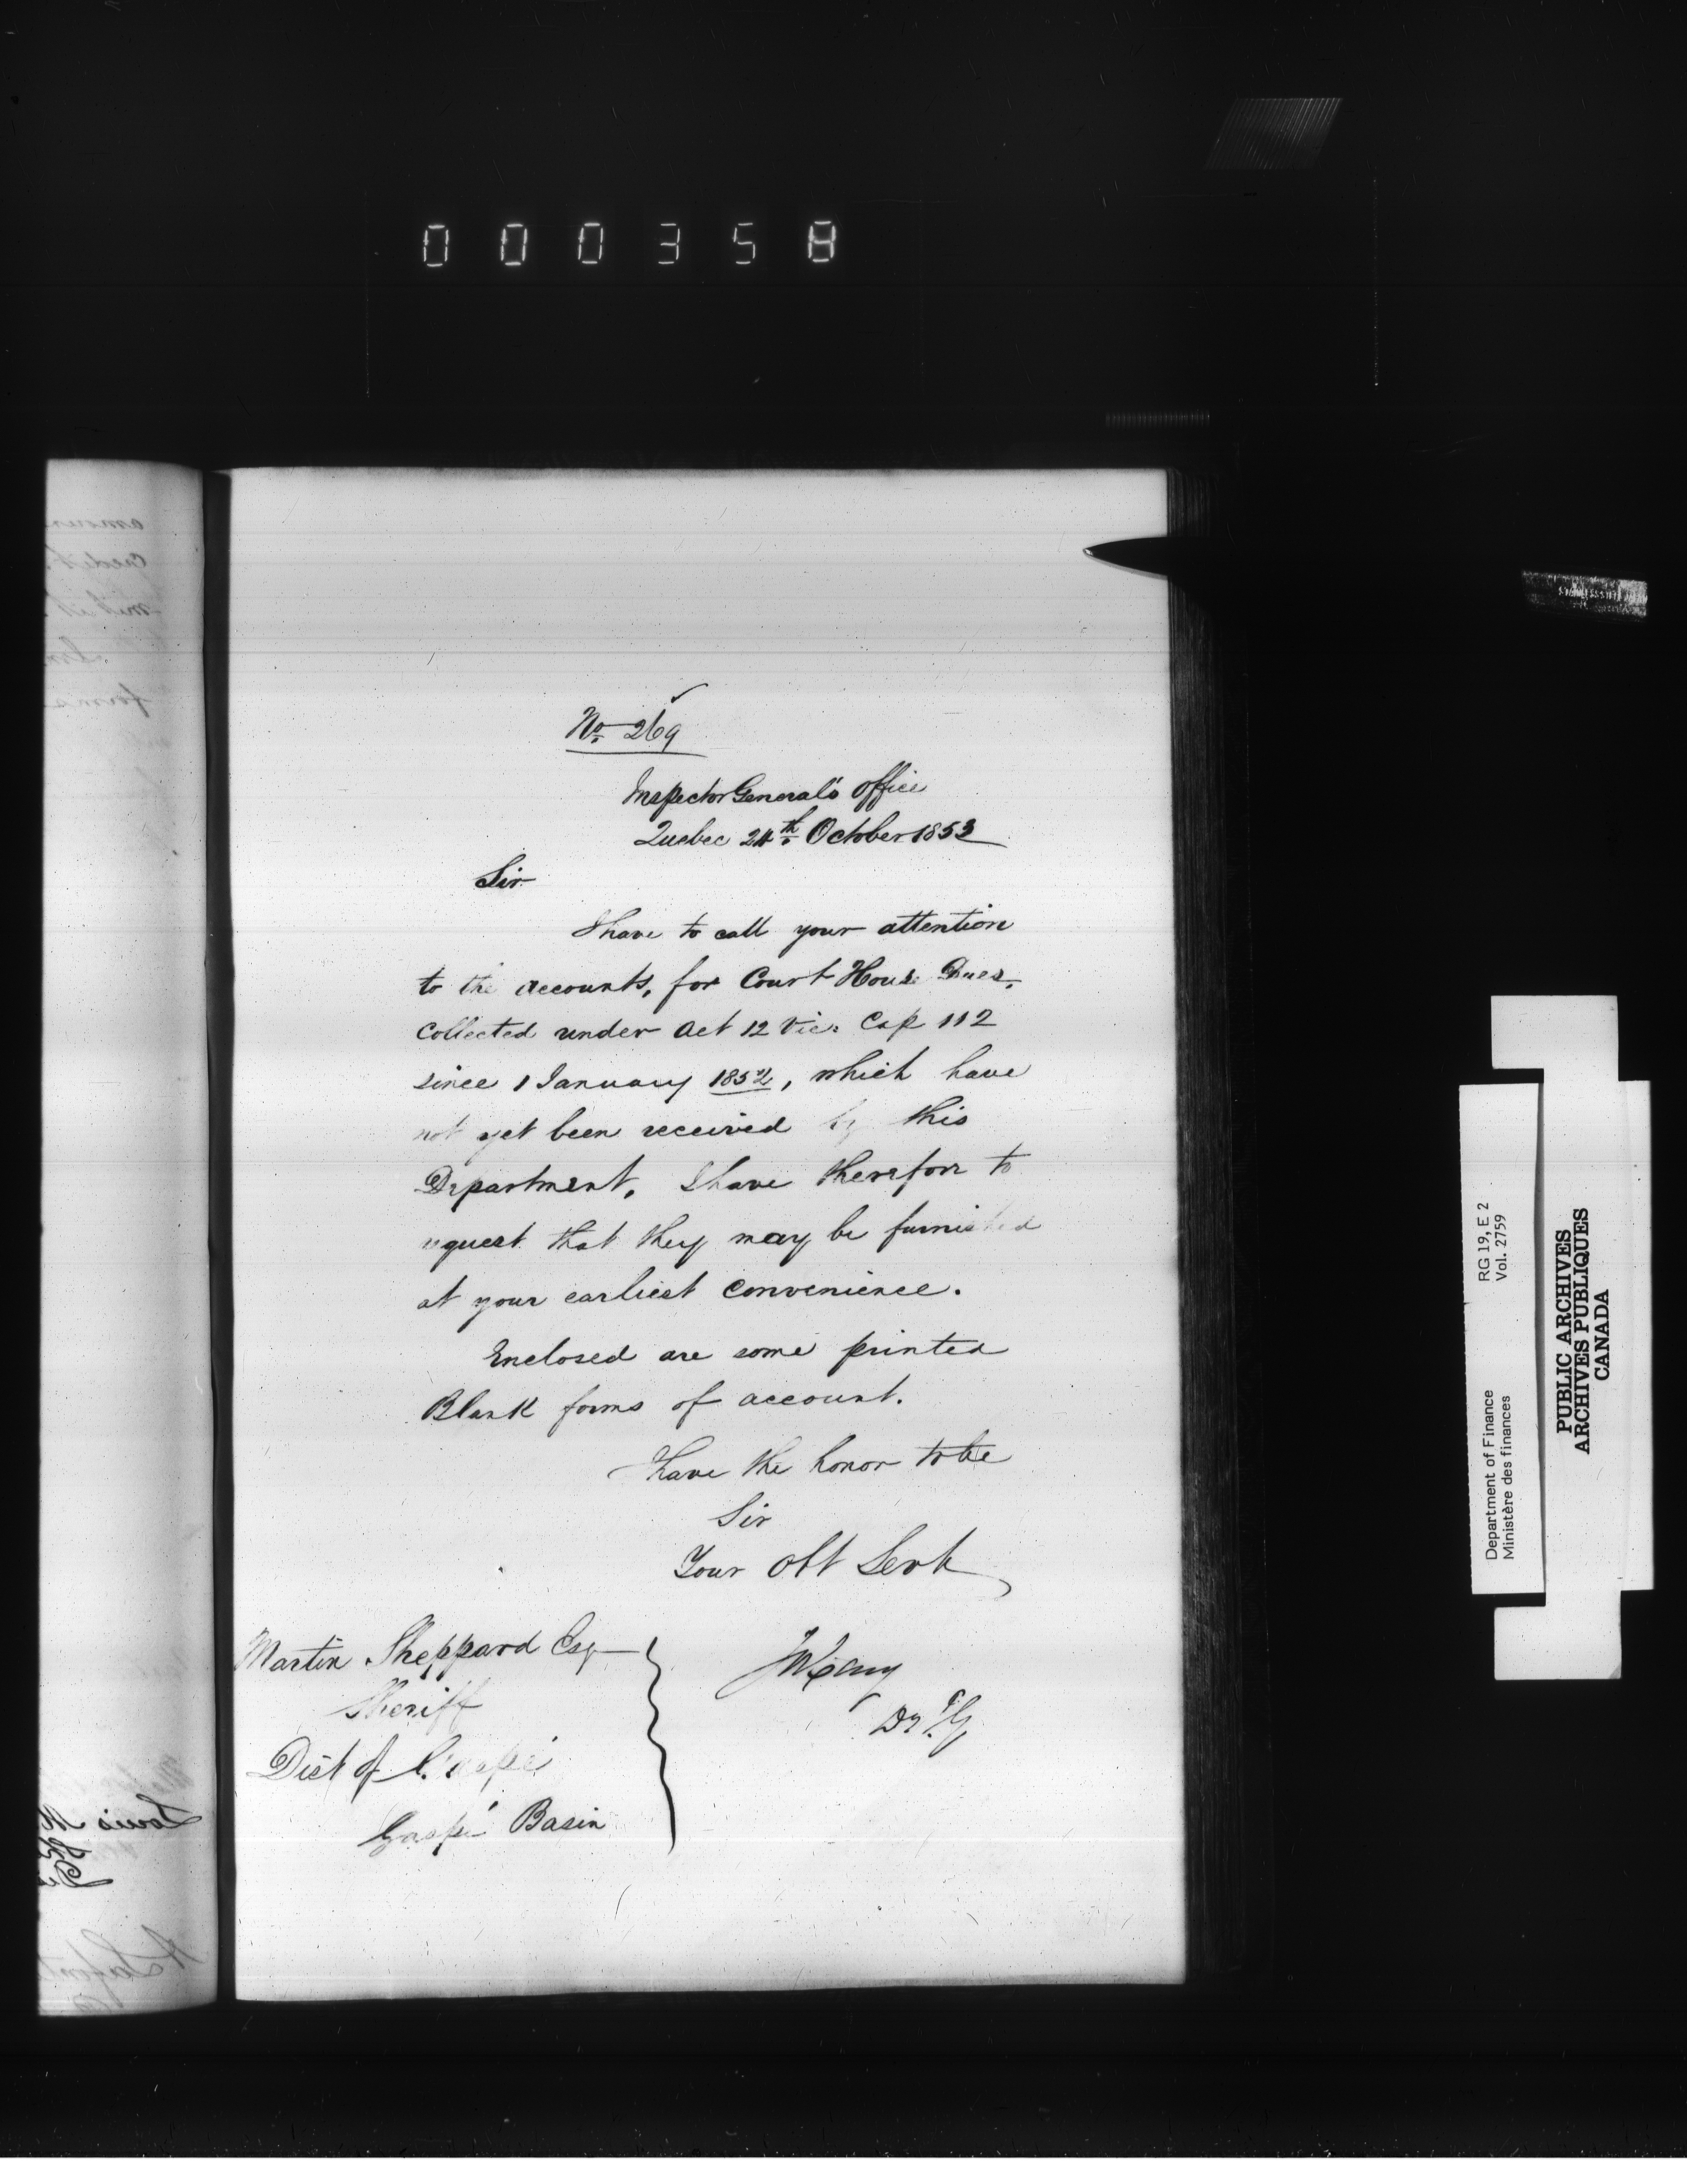 000358
No. 269
Inspector General's Office
Quebec 24th October 1853
Sir
I have to call your attention
to the accounts, for Court House Dues,
collected under Act 12 Vic. Cap 112
since 1 January 1852, which have
not yet been received by this
Department, I have therefore to
request that they may be furnished
at your earliest convenience.
Enclosed are some printed
Blank forms of account.
have the honor to be
Sir
Your Obt Servt
Martin Sheppard Esq
Sheriff
Dist of Gaspé
Gaspé Basin
Cary
Dy I. G.
Department of Finance RG 19, E 2
Ministère des finances Vol. 2759
PUBLIC ARCHIVES
ARCHIVES PUBLIQUES
CANADA